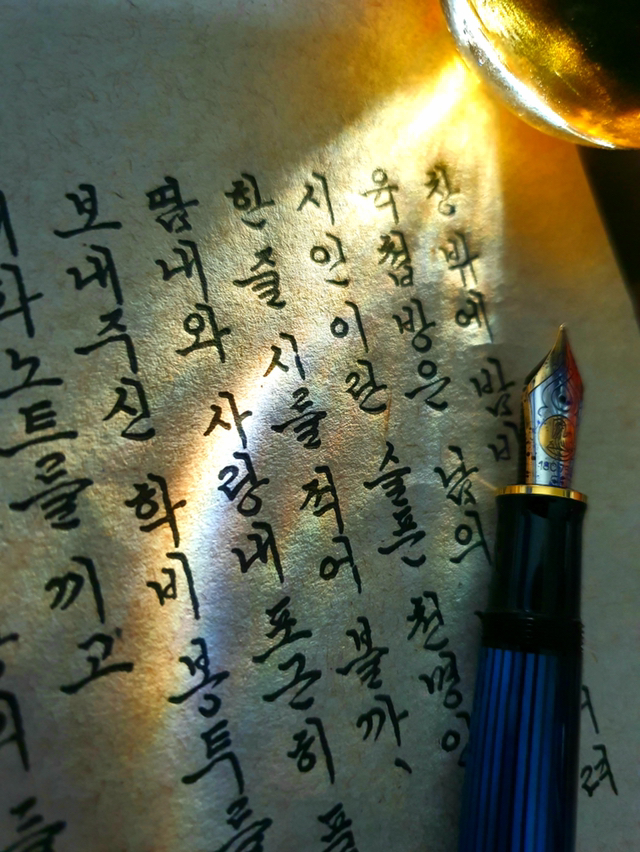 창 밖에 밤비 려
육첩방은 남의
시인이란 슬픈 천명인
한 줄 시를 적어 볼까、
땀내와 사랑내 포근히 품
보내주신 학비 봉투를
노트를 끼고